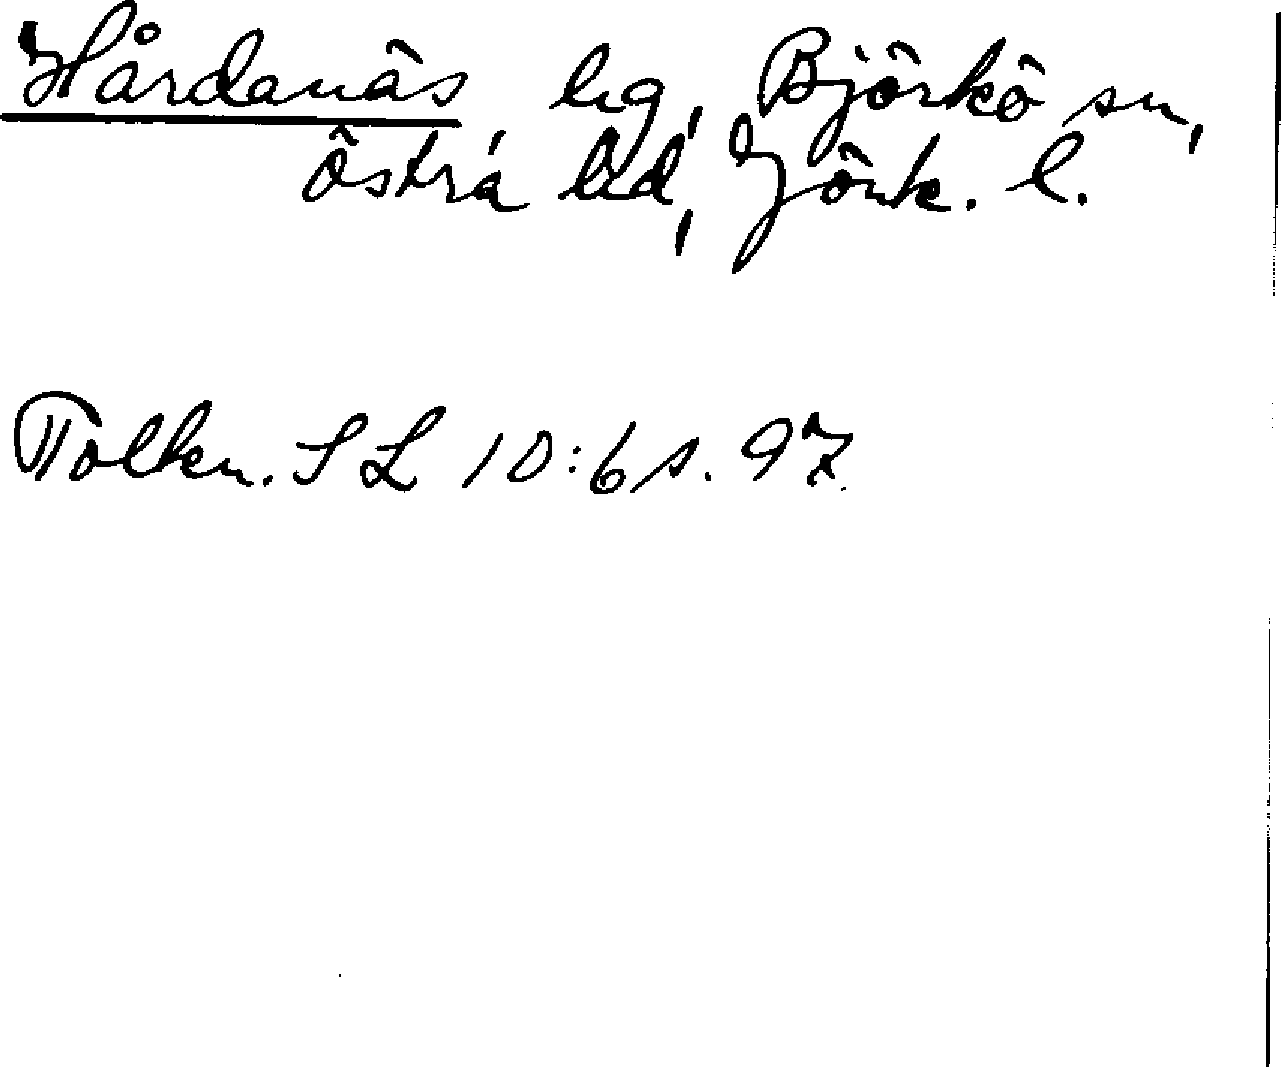 Hårdanäs hg, Björkö sn,
Östra hd, Jönk. l.
Tolkn. SL 10:6 s. 97.